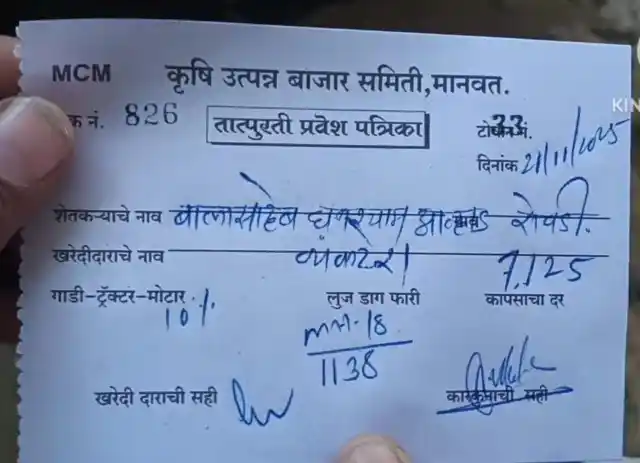 MCM कृषि उत्पन्न बाजार समिती,मानवत.
क नं. 826 तात्पुरती प्रवेश पत्रिका
33
दिनांक 21/11/2025
शेतकऱ्याचे नाव बालासाहेब घनश्याम आव्हाड
खरेदीदाराचे नाव व्यंकटेश
7,125
गाडी-ट्रॅक्टर-मोटार लुज डाग फारी कापसाचा दर
10%
1138
खरेदी दाराची सही
KIN